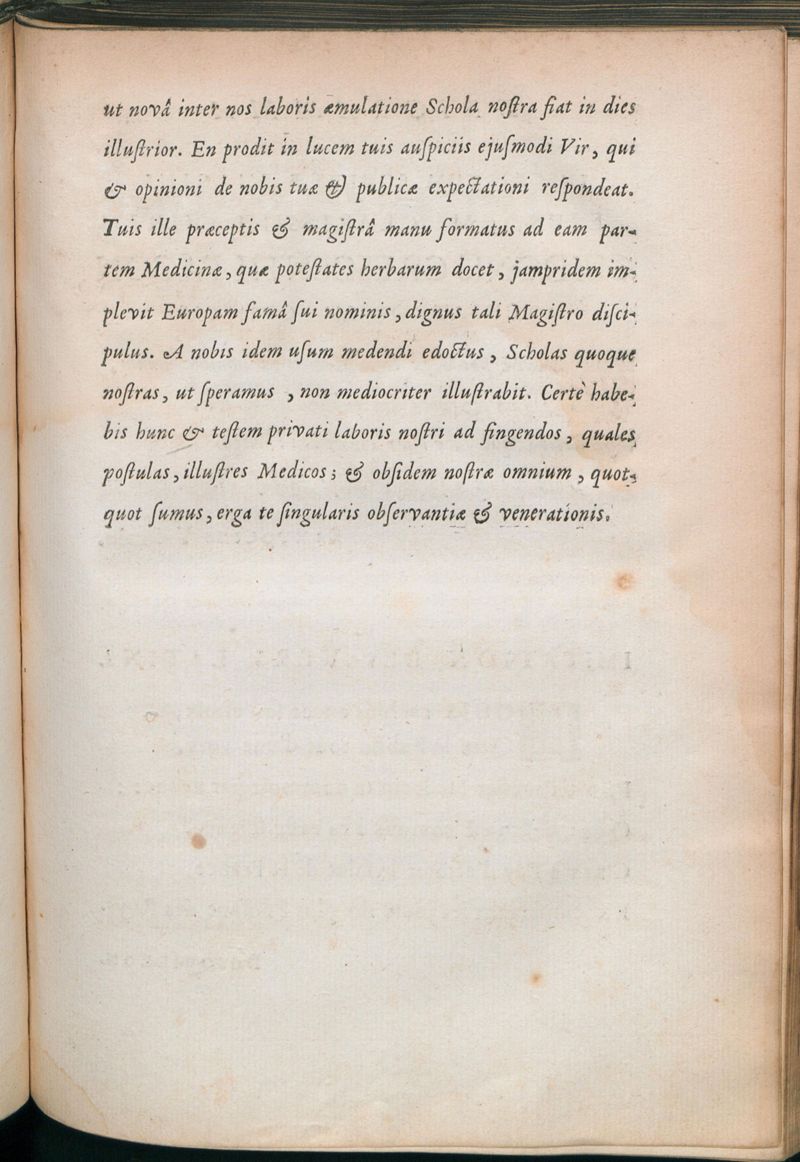 ut novâ inter nos laboris æmulatione Schola noſtra fiat in dies
illuſtrior. En prodit in lucem tuis auſpiciis ejuſmodi Vir, qui
& opinioni de nobis tuæ & publicæ expectationi reſpondeat.
Tuis ille præceptis & magiſtrâ manu formatus ad eam par-
tem Medicinæ, quæ poteſtates herbarum docet, jampridem im-
plevit Europam famâ ſui nominis, dignus tali Magiſtro diſci-
pulus. A nobis idem uſum medendi edoctus, Scholas quoque
noſtras, ut ſperamus, non mediocriter illuſtrabit. Certè habe-
bis hunc & teſtem privati laboris noſtri ad fingendos, quales
poſtulas, illuſtres Medicos; & obſidem noſtræ omnium, quot-
quot ſumus, erga te ſingularis obſervantiæ & venerationis.